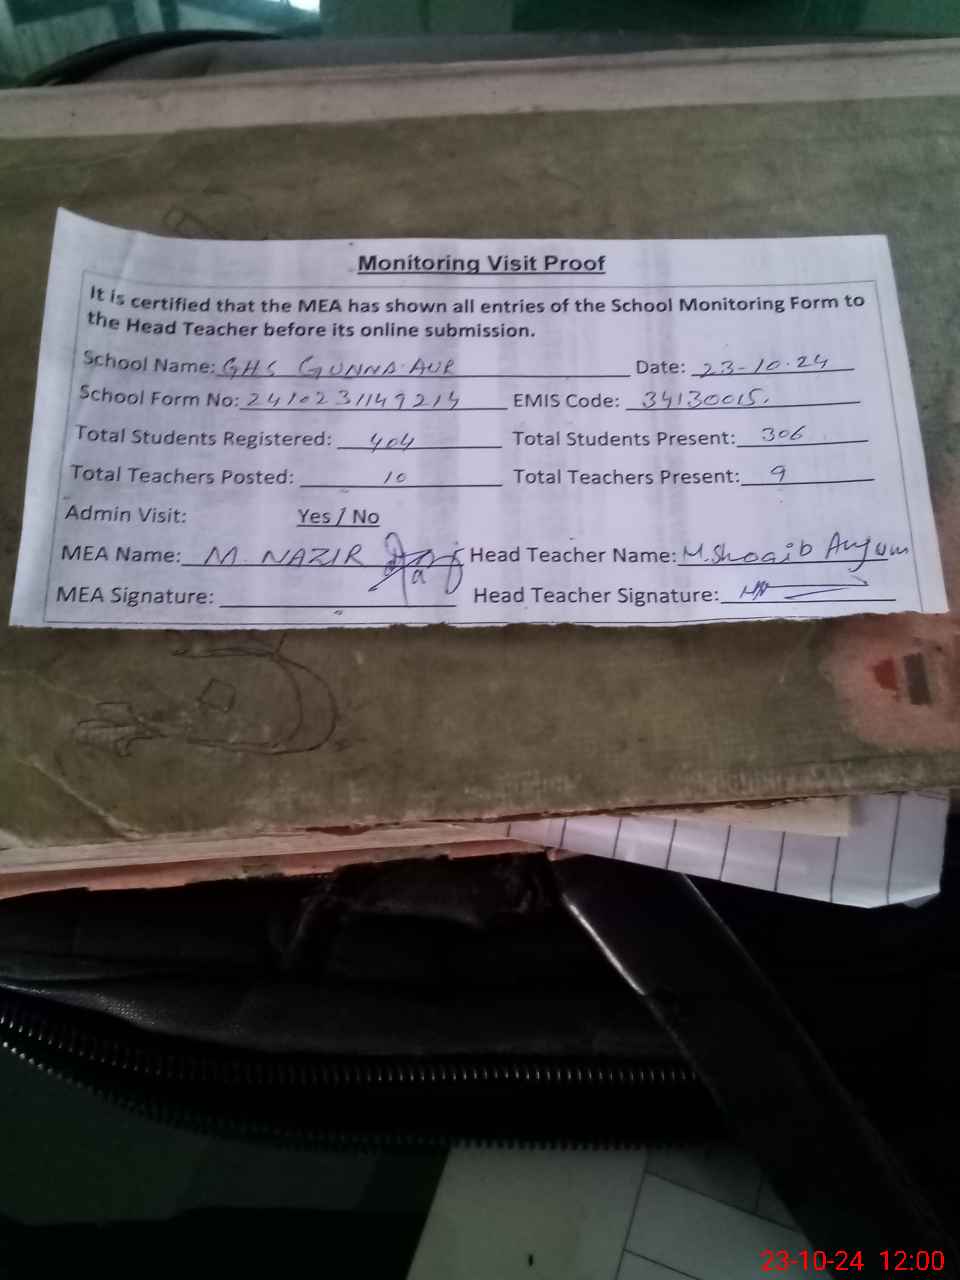 Monitoring Visit Proof
It is certified that the MEA has shown all entries of the School Monitoring Form to
the Head Teacher before its online submission.
School Name: GHS GUNNA AUR Date: 23-10-24
School Form No: 2410231149214 EMIS Code: 34130015.
Total Students Registered: 404 Total Students Present: 306
Total Teachers Posted: 10 Total Teachers Present: 9
Admin Visit: Yes / No
MEA Name: M. NAZIR Head Teacher Name: M.Shoaib Anjum
MEA Signature: Head Teacher Signature:
23-10-24 12:00